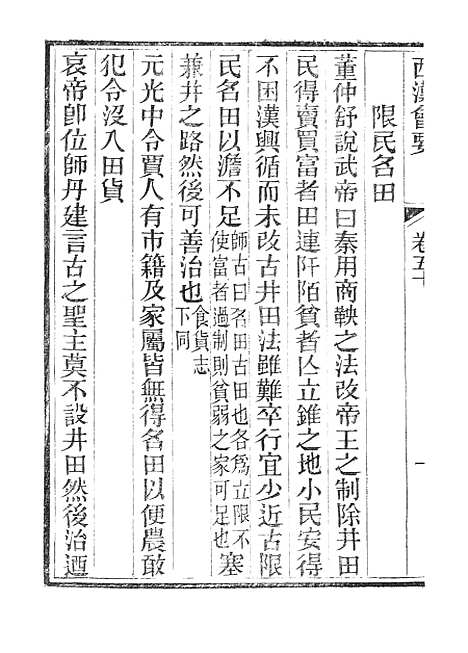 西漢會要
卷五十
一
限民名田
董仲舒說武帝曰秦用商鞅之法改帝王之制除井田
民得賣買富者田連阡陌貧者亾立錐之地小民安得
不困漢興循而未改古井田法雖難卒行宜少近古限
民名田以澹不足師古曰名田古田也各爲立限不使富者過制則貧弱之家可足也塞
兼并之路然後可善治也食貨志下同
元光中令賈人有市籍及家屬皆無得名田以便農敢
犯令沒入田貨
哀帝卽位師丹建言古之聖主莫不設井田然後治迺